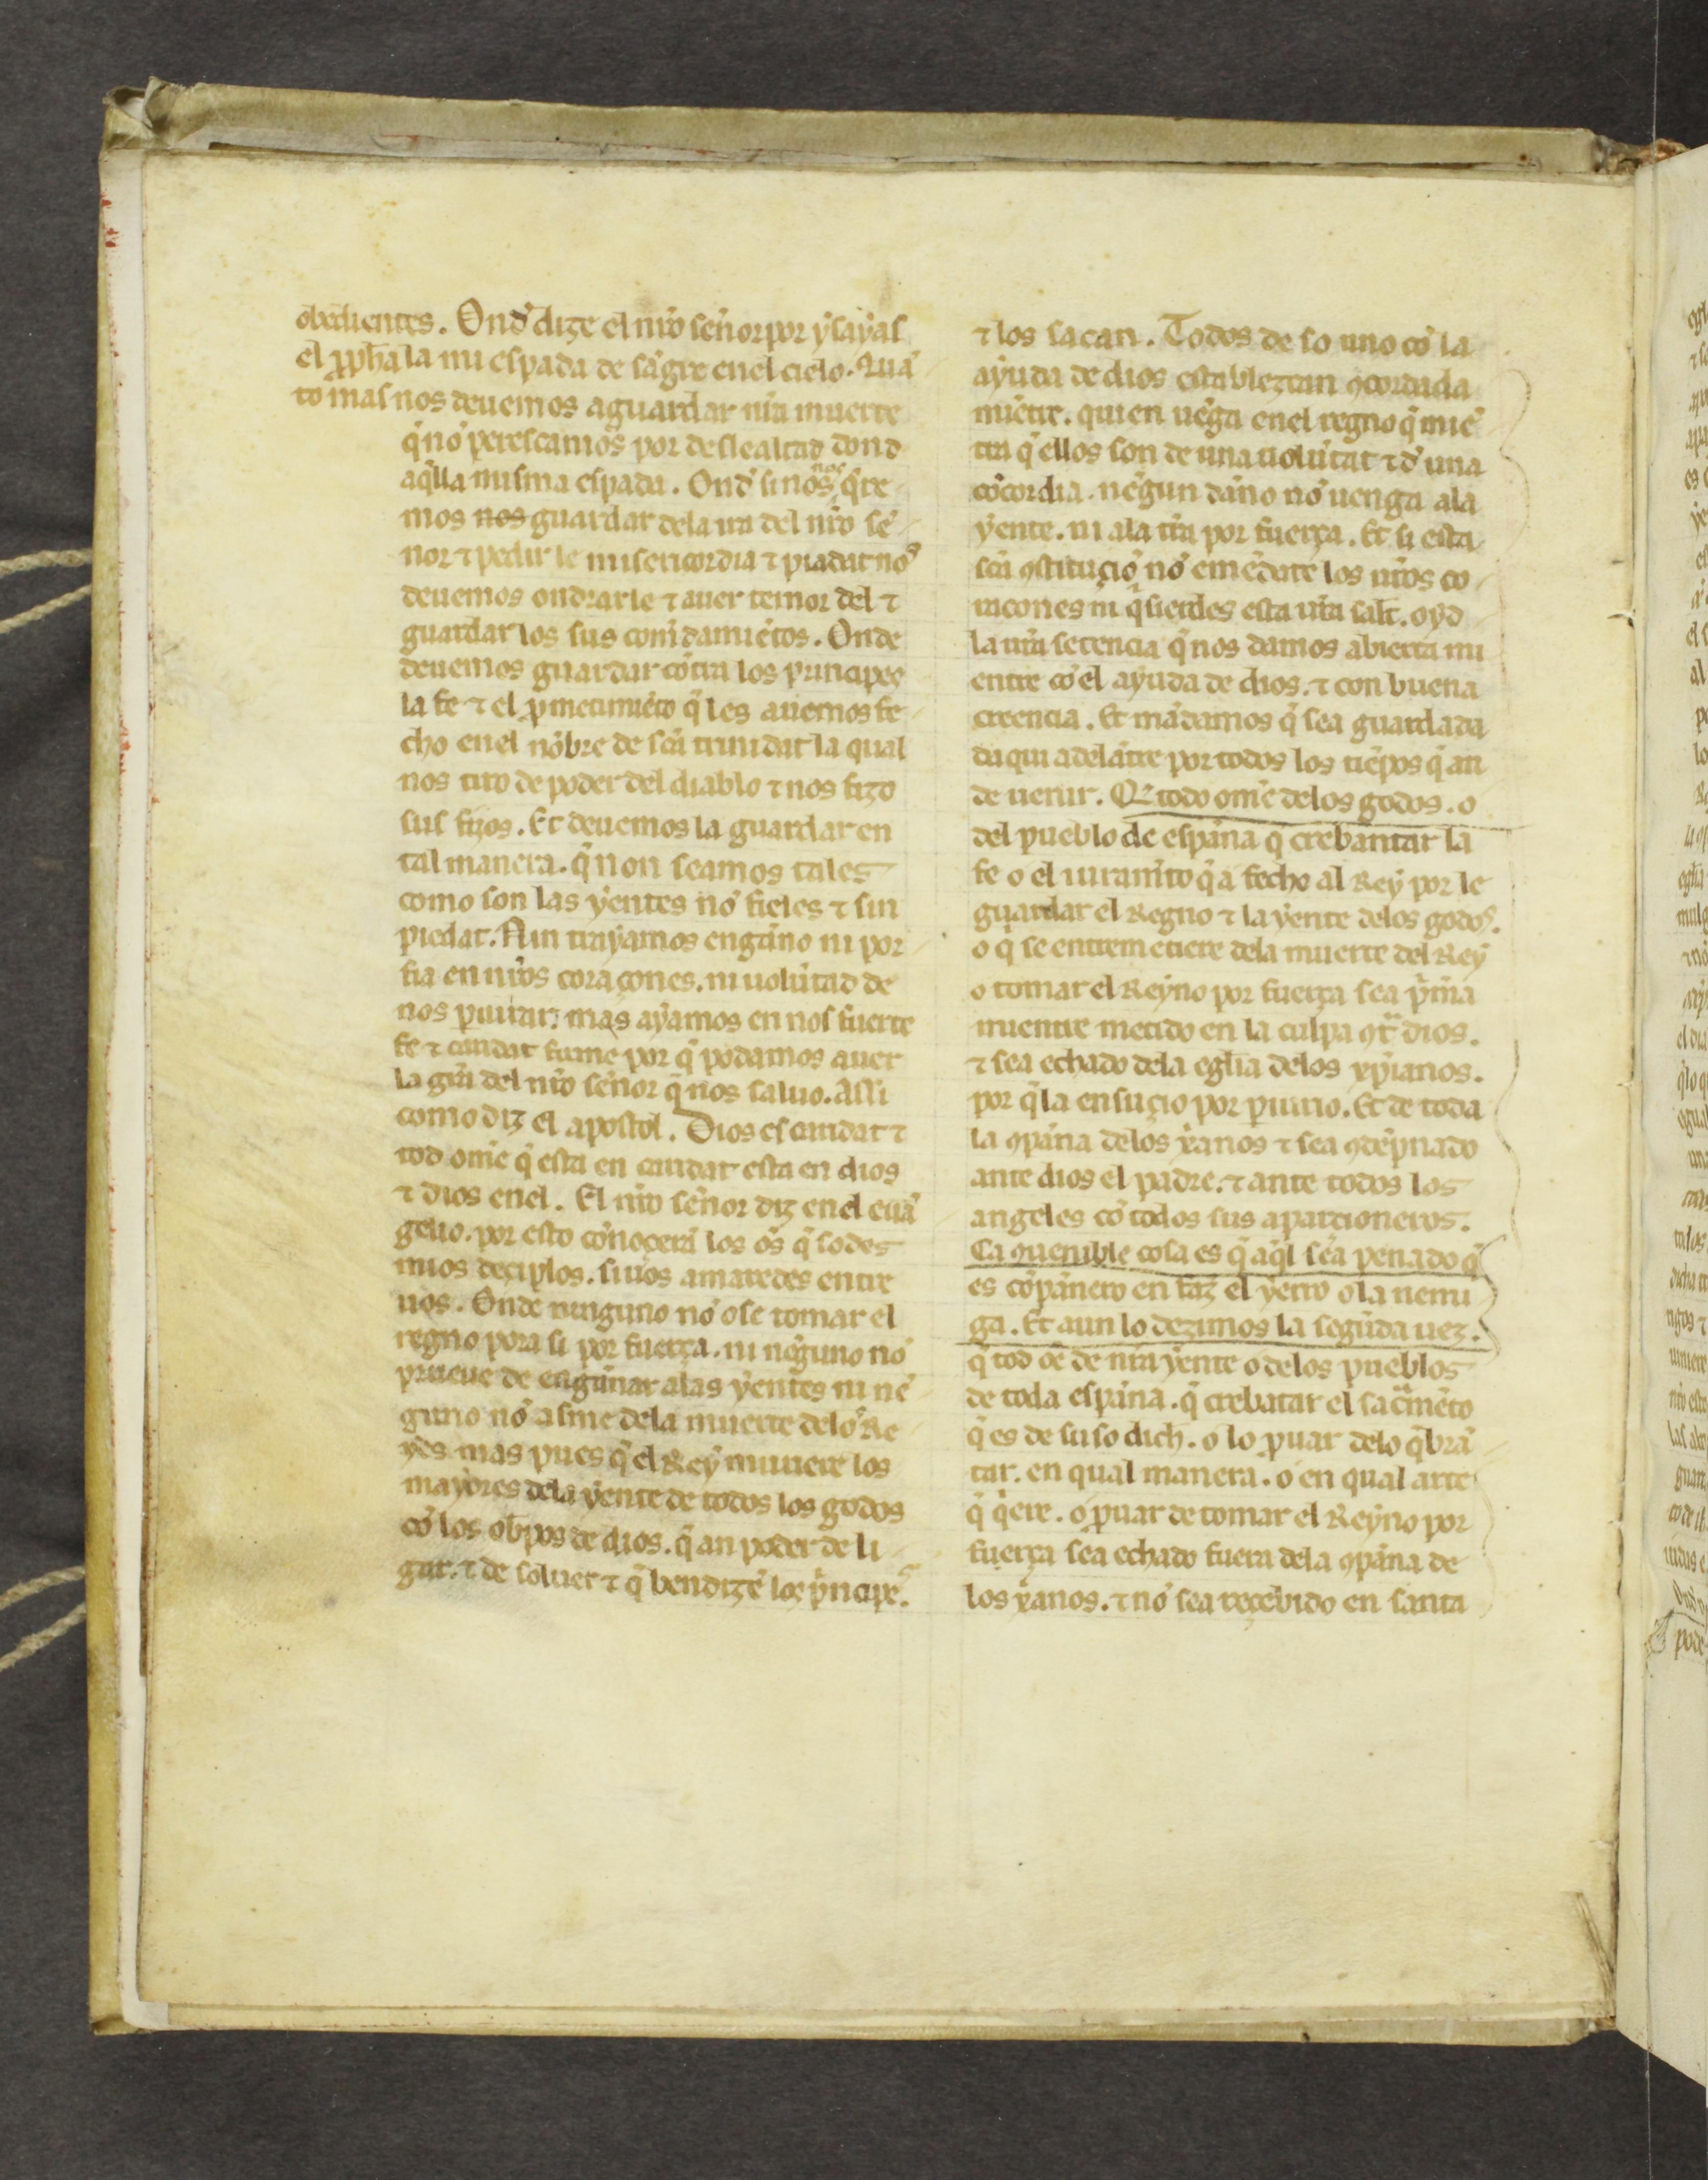 obedientes. Ond̉ dize el nr̃o señor por ysayas
el ꝓph̃a la mi espada de sãgre enel cielo. Quã
to mas nos deuemos aguardar nr̃a muerte
q̃ nõ perescamos por deslealtad dond
aq̃lla misma espada. Ond̉ si nos nos q̃re
mos nos guardar dela ira del nr̃o se
ñor ⁊ pedir le misericordia ⁊ piadat nos
deuemos ondrarle ⁊ auer temor del ⁊
guardar los sus comĩdamiẽtos. Onde
deuemos guardar cõtra los principes
la fe ⁊ el ꝓmetimiẽto q̃ les auemos fe
cho enel nõbre de sc̃a trinidat la qual
nos tiro de poder del diablo ⁊ nos fizo
sus fijos. Et deuemos la guardar en
tal manera. q̃ non seamos tales
como son las yentes nõ fieles ⁊ sin
piedat. Nin trayamos engãno ni por
fia en nr̃os coraçones. ni uolũtad de
nos periurar; mas ayamos en nos fuerte
fe ⁊ caridat firme por q̃ podamos auer
la gr̃a del nr̃o señor q̃ nos saluo. Assi
como diz el apostol. Dios es caridat ⁊
tod ome q̃ esta en caridat esta en dios
⁊ dios enel. El nr̃o señor diz en el euã
gelio. por esto cõnoçerã los oẽs q̃ sodes
mios deçiplos. si uos amaredes entre
uos. Onde ninguno nõ ose tomar el
regno pora si por fuerça. ni nẽguno nõ
prueue de engãnar alas yentes ni nẽ
guno nõ asme dela muerte delos Re
yes mas pues q̃ el Rey muriere los
mayores dela yente de todos los godos
cõ los ob̃pos de dios. q̃ an poder de li
gar. ⁊ de soluer ⁊ q̃ bendizẽ los p̃ncipes.
⁊ los sacan. Todos de so uno cõ la
ayuda de dios establezcan ꝯcordada
miẽtre. quien uẽga enel regno q̃ miẽ
tra q̃ ellos son de una uolũtat ⁊ d̉ una
cõcordia. nẽgun dãno nõ uenga ala
yente. ni ala tr̃ra por fuerça. Et si esta
sc̃a ꝯstituçiõ nõ emẽdare los ur̃os co
racones ni q̃sierdes esta ur̃a salt. oyd
la nr̃a setencia q̃ nos damos abierta mi
entre cõ el ayuda de dios. ⁊ con buena
creencia. Et mãdamos q̃ sea guardada
da qui adelãtre por todos los tiẽpos q̃ an
de uenir. Q̃ todo ome delos godos. o
del pueblo de espãna q̃ crebantar la
fe o el iuramĩto q̃ a fecho al Rey por le
guardar el Regno ⁊ la yente delos godos.
o q̃ se entremetiere dela muerte del Rey
o tomar el Reyno por fuerça sea p̃m̃a
mientre metido en la culpa ꝯt̃ dios.
⁊ sea echado dela egl̃ia delos xp̃ianos.
por q̃ la ensuçio por periurio. Et de toda
la ꝯpãna delos xãnos ⁊ sea ꝯdẽpnado
ante dios el padre. ⁊ ante todos los
angeles cõ todos sus aparcioneros.
Ca ꝯuenible cosa es q̃ aq̃l sea penado q̃
es cõpãnero en faz̉ el yerro o la nemi
ga. Et aun lo dezimos la segũda uez.
q̃ tod oẽ de nr̃a yente o delos pueblos
de toda espãna. q̃ crebãtar el sac̃mẽto
q̃ es de suso dich̃. o lo ꝓuar delo q̃brã
tar. en qual manera. o en qual arte
q̃ q̃ere. o ꝓuar de tomar el Reyno por
fuerça sea echado fuera dela ꝯpãna de
los xãnos. ⁊ nõ sea reçebido en santa